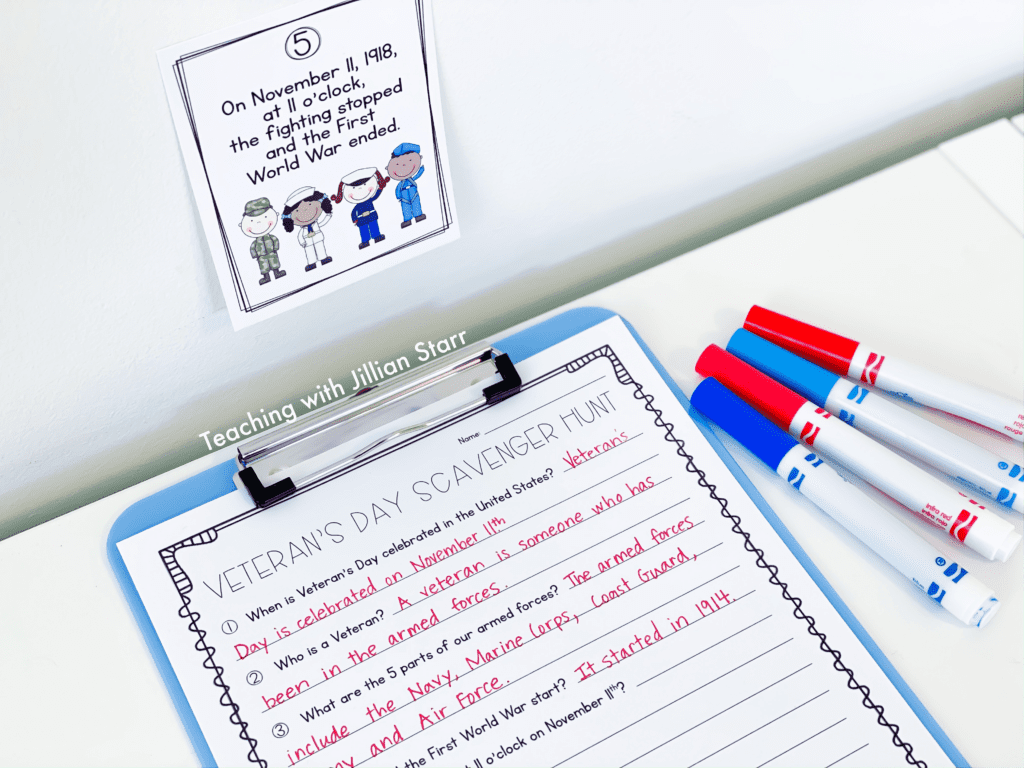 5
On November 11, 1918,
at 11 o'clock,
the fighting stopped
and the First
World War ended.
Teaching with Jillian Starr
Name:
VETERAN'S DAY SCAVENGER HUNT
1 When is Veteran's Day celebrated in the United States? Veteran's
Day is celebrated on November 11th
2 Who is a Veteran? A veteran is someone who has
been in the armed forces.
3 What are the 5 parts of our armed forces? The armed forces
include the Navy, Marine Corps, Coast Guard,
and Air Force.
the First World War start? It started in 1914.
11 o'clock on November 11th?
infra red
infra rojo